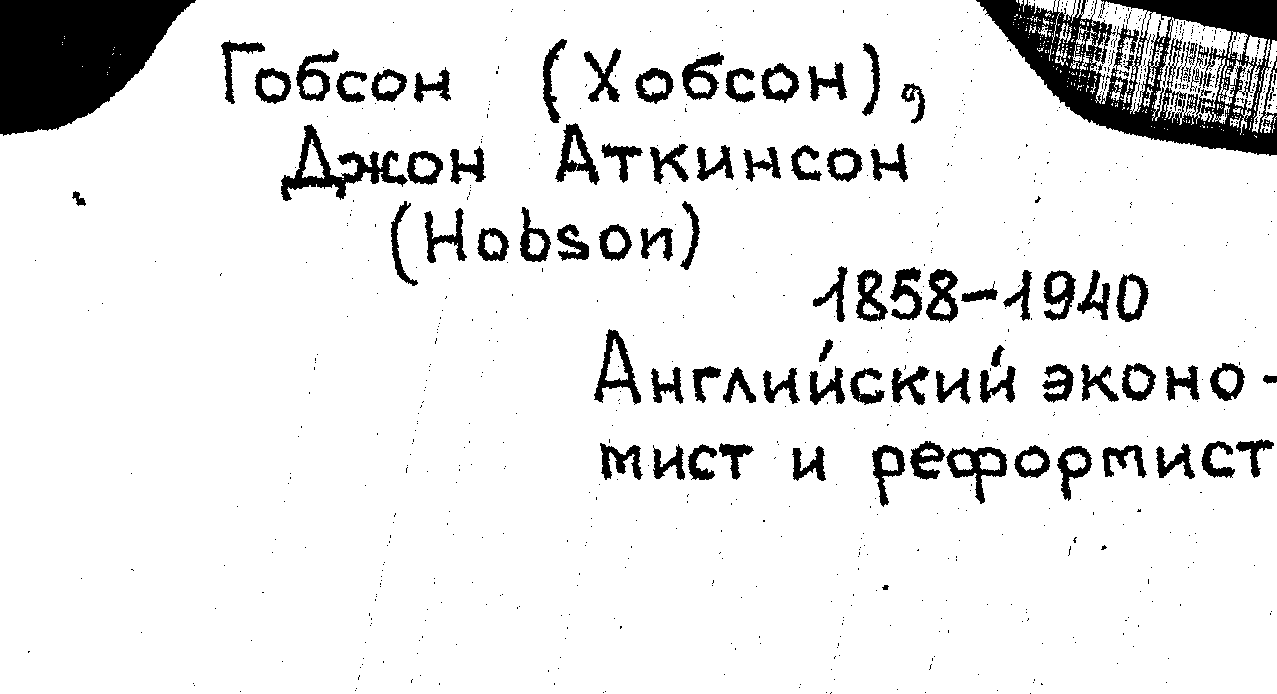 Гобсон (Хобсон),
Джон Аткинсон
(Hobson)
1858-1940
Английский эконо-
мист и реформист